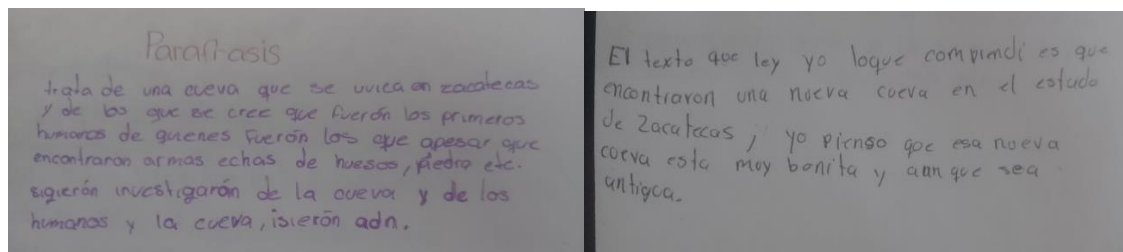 Parafrasis
trata de una cueva que se uvica en zacatecas
y de los que se cree que fuerón los primeros
humanos de quienes fuerón los que apesar que
encontraron armas echas de huesos, piedra etc.
sigierón investigarón de la cueva y de los
humanos y la cueva, isierón adn.
El texto que ley yo loque comprndi es que
encontraron una nueva cueva en el estado
de Zacatecas, yo pienso que esa nueva
cueva esta muy bonita y aun que sea
antigua.